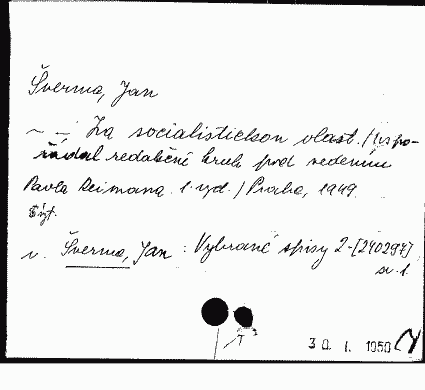 Šverma, Jan
~ — : Za socialistickou vlast. /Uspo-
řádal redakční kruh pod vedením
Pavla Reimana. 1. vyd./ Praha, 1949.
v. Šverma, Jan : Vybrané spisy 2-[240297]
sv. 1.
30. I. 1950